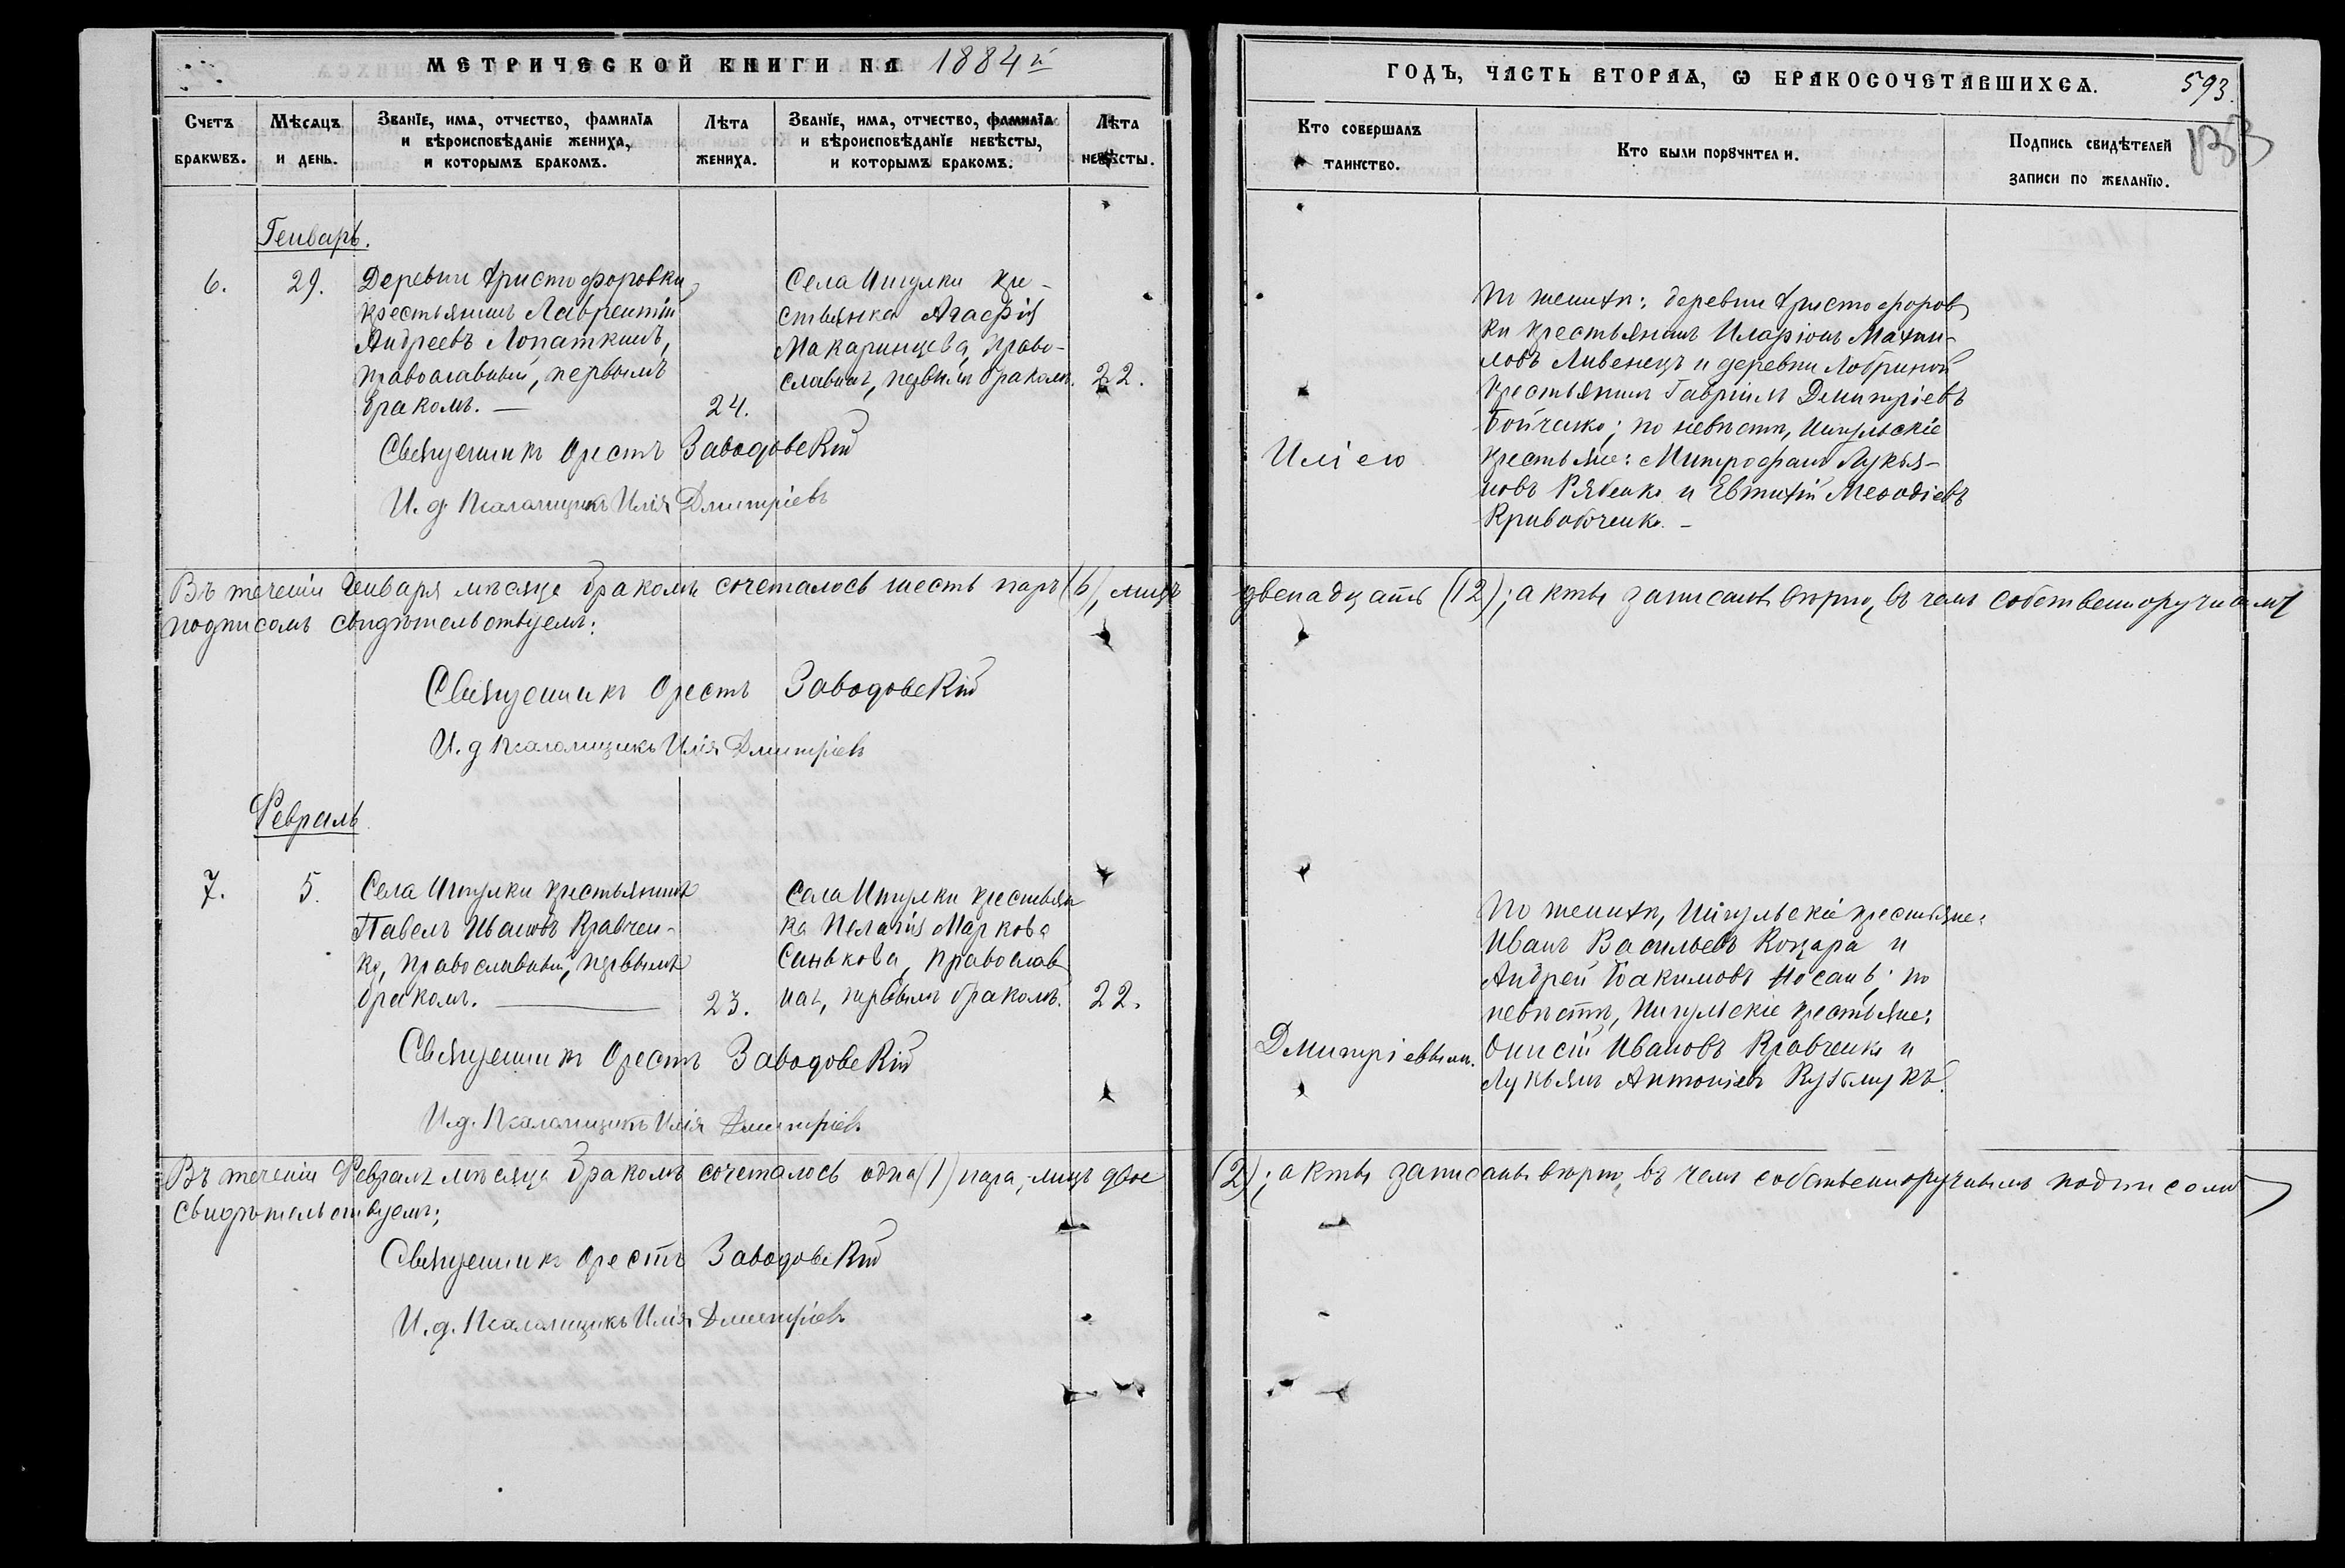 МЕТРИЧЕСКОЙ КНИГИ НА 1884й
Счетъ браковъ.
Мѣсяцъ и день.
Званіе, имя, отчество, фамилія
и вѣроисповѣданіе жениха,
и которымъ бракомъ.
Лѣта
жениха.
Званіе, имя, отчество, фамилія
и вѣроисповѣданіе невѣсты,
и которымъ бракомъ.
Лѣта
невѣсты.
Генварь.
6.
29.
Деревни Христофоровки
крестьянинъ Лаврентій
Андреевъ Лопаткинъ,
православный, первымъ
бракомъ. —
24.
Села Ингулки кре-
стьянка Агафія
Макаринцева, право-
славная, первымъ бракомъ.
22.
Священникъ Орестъ Заводовскій
И. д. Псаломщика Илія Дмитріевъ
Въ теченіи Генваря мѣсяца бракомъ сочеталось шесть паръ (6), лицъ
подписомъ свидѣтельствуемъ:
Священникъ Орестъ Заводовскій
И. д Псаломщика Илія Дмитріевъ
Февраль
7.
5.
Села Ингулки крестьянинъ
Павелъ Ивановъ Кравчен-
ко, православный, первымъ
бракомъ. —
23.
Села Ингулки крестьян
ка Пелагія Маркова
Санькова, православ
ная, первымъ бракомъ.
22.
Священникъ Орестъ Заводовскій
И.д. Псаломщика Илія Дмитріевъ
Въ теченіи Февраля мѣсяца бракомъ сочеталось одна (1) пара, лицъ двое
свидѣтельствуемъ:
Священникъ Орестъ Заводовскій
И. д. Псаломщика Илія Дмитріевъ
ГОДЪ, ЧАСТЬ ВТОРАЯ, Ѡ БРАКОСОЧЕТАВШИХСЯ.
593.
Кто совершалъ
таинство.
Кто были поручители.
Подпись свидѣтелей
записи по желанію.
Иліею
По женихѣ: деревни Христофоров
ки крестьянинъ Иларіонъ Махни-
ловъ Ливенецъ и деревни Лобриной
крестьянинъ Гавріилъ Дмитріевъ
Бойченко; по невѣстѣ, Ингульскіе
крестьяне: Митрофанъ Лукья-
новъ Рябенко и Евтихій Меѳодіевъ
Кривобоченко. —
двенадцать (12); акты записаны вѣрно, въ чемъ собственноручнымъ
Дмитріевымъ.
По женихѣ, Ингульскіе крестьяне:
Иванъ Васильевъ Коцара и
Андрей Іоакимовъ Носань; по
невѣстѣ, Ингульскіе крестьяне:
Онисій Ивановъ Кравченко и
Лукьянъ Антоніевъ Кузьмукъ.
(2); акты записаны вѣрно, въ чемъ собственноручнымъ подписомъ